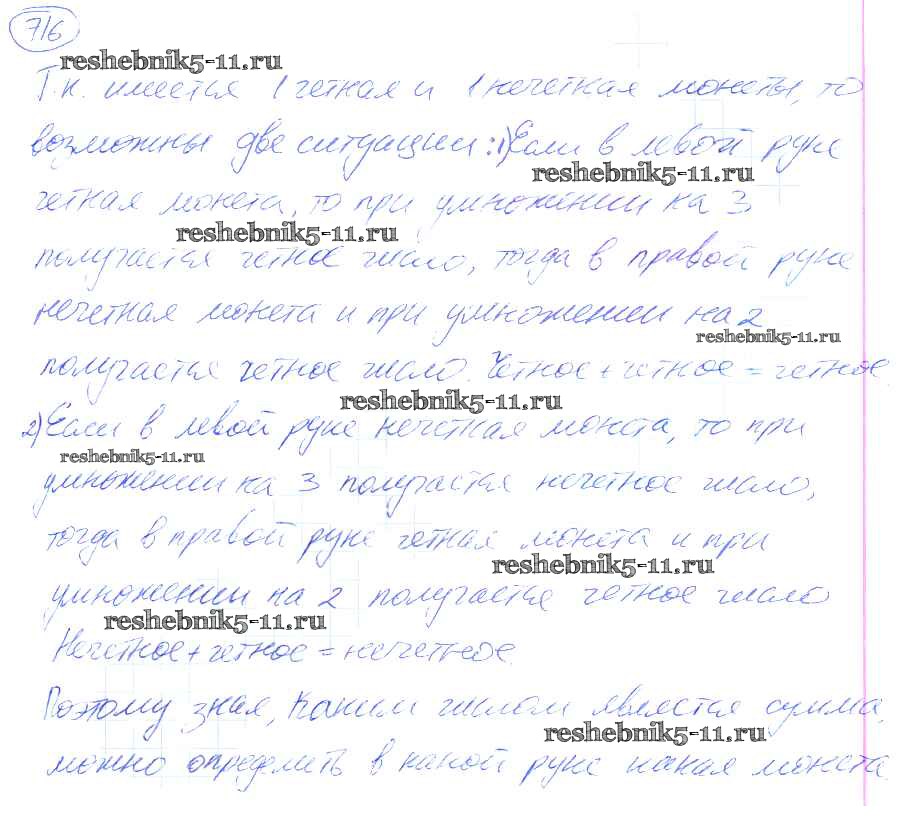 716
reshebnik5-11.ru
Т.к. имеется 1 четная и 1 нечетная монеты, то
возможны две ситуации: 1) Если в левой руке
reshebnik5-11.ru
четная монета, то при умножении на 3
reshebnik5-11.ru
получается четное число, тогда в правой руке
нечетная монета и при умножении на 2
reshebnik5-11.ru
получается четное число. Четное + четное = четное.
reshebnik5-11.ru
2) Если в левой руке нечетная монета, то при
reshebnik5-11.ru
умножении на 3 получается нечетное число,
тогда в правой руке четная монета и при
reshebnik5-11.ru
умножении на 2 получается четное число
reshebnik5-11.ru
Нечетное + четное = нечетное.
Поэтому зная, каким числом является сумма,
reshebnik5-11.ru
можно определить в какой руке какая монета